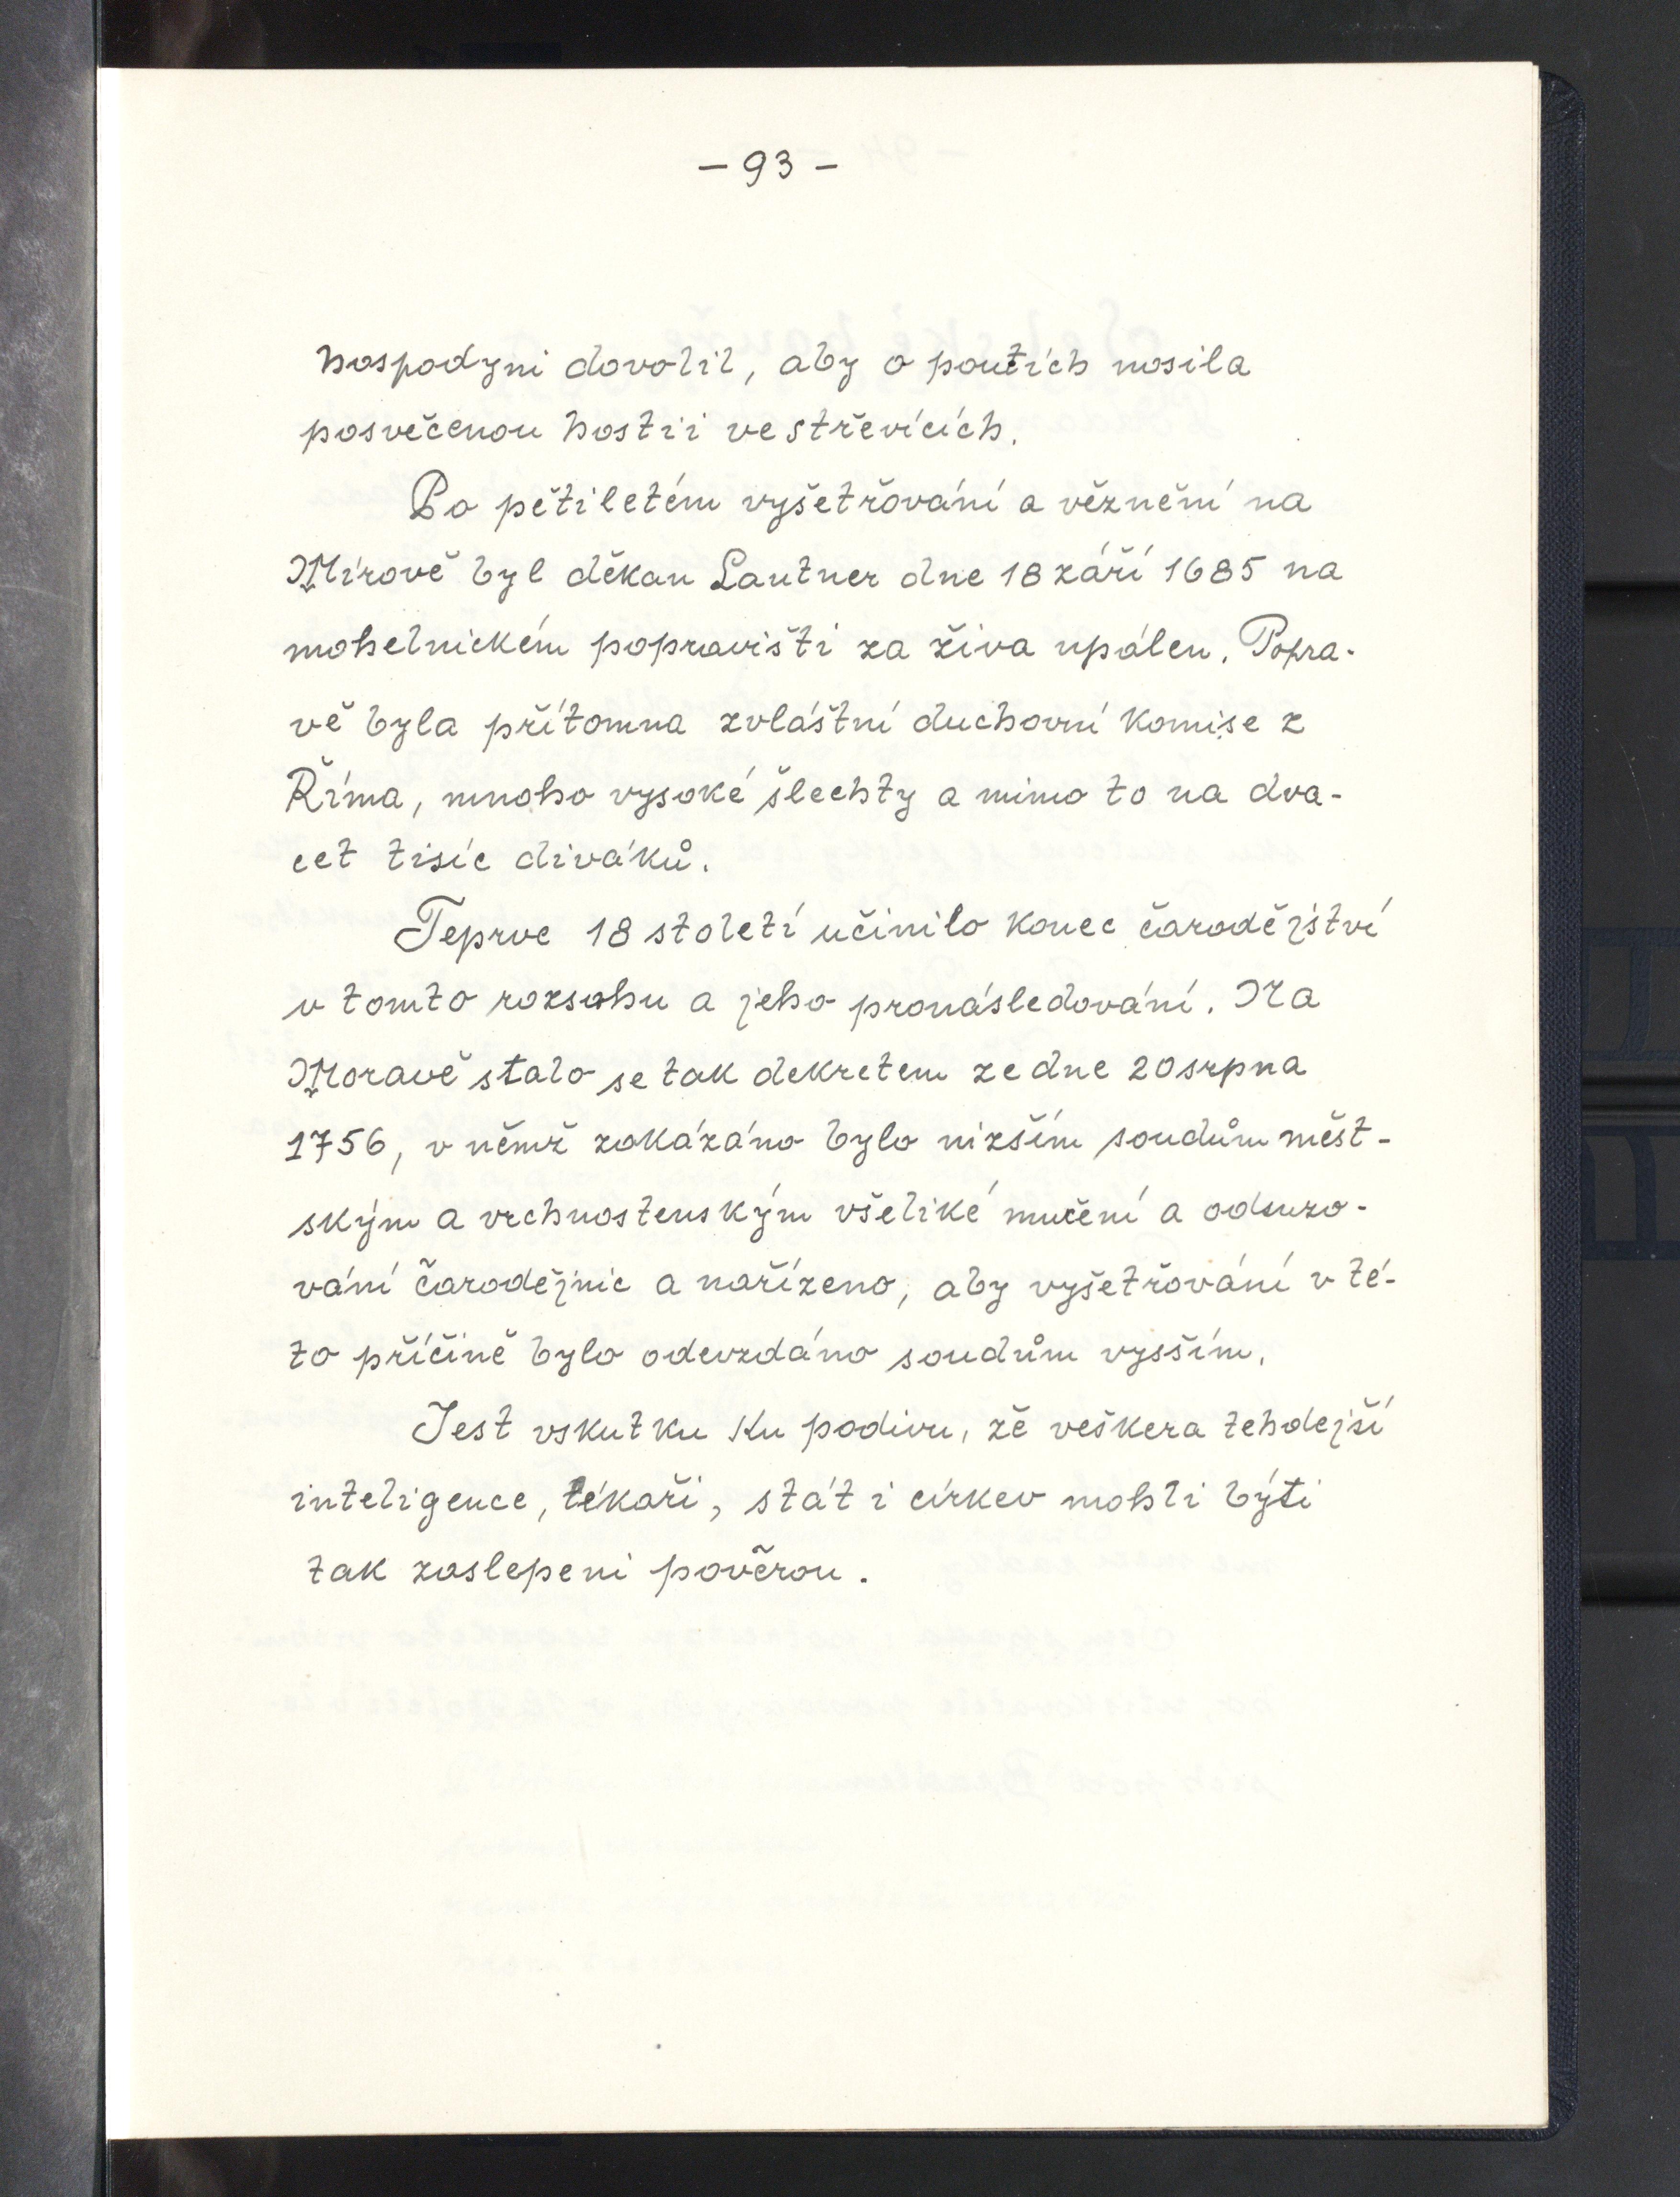 – 93 –
hospodyni dovolil, aby o poutích nosila
posvěcenou hostii ve střevících.
Po pětiletém vyšetřování a věznění na
Mírově byl děkan Lautner dne 18 září 1685 na
mohelnickém popravišti za živa upálen. Popra-
vě byla přítomna zvláštní duchovní komise z
Říma, mnoho vysoké šlechty a mimo to na dva-
cet tisíc diváků.
Teprve 18 století učinilo konec čarodějství
v tomto rozsahu a jeho pronásledování. Na
Moravě stalo se tak dekretem ze dne 20 srpna
1756, v němž zakázáno bylo nižším soudům měst-
ským a vrchnostenským všeliké mučení a odsuzo-
vání čarodějnic a nařízeno, aby vyšetřování v té-
to příčině bylo odevzdáno soudům vyšším.
Jest vskutku ku podivu, že veškera tehdejší
inteligence, lékaři, stát i církev mohli býti
tak zaslepeni pověrou.